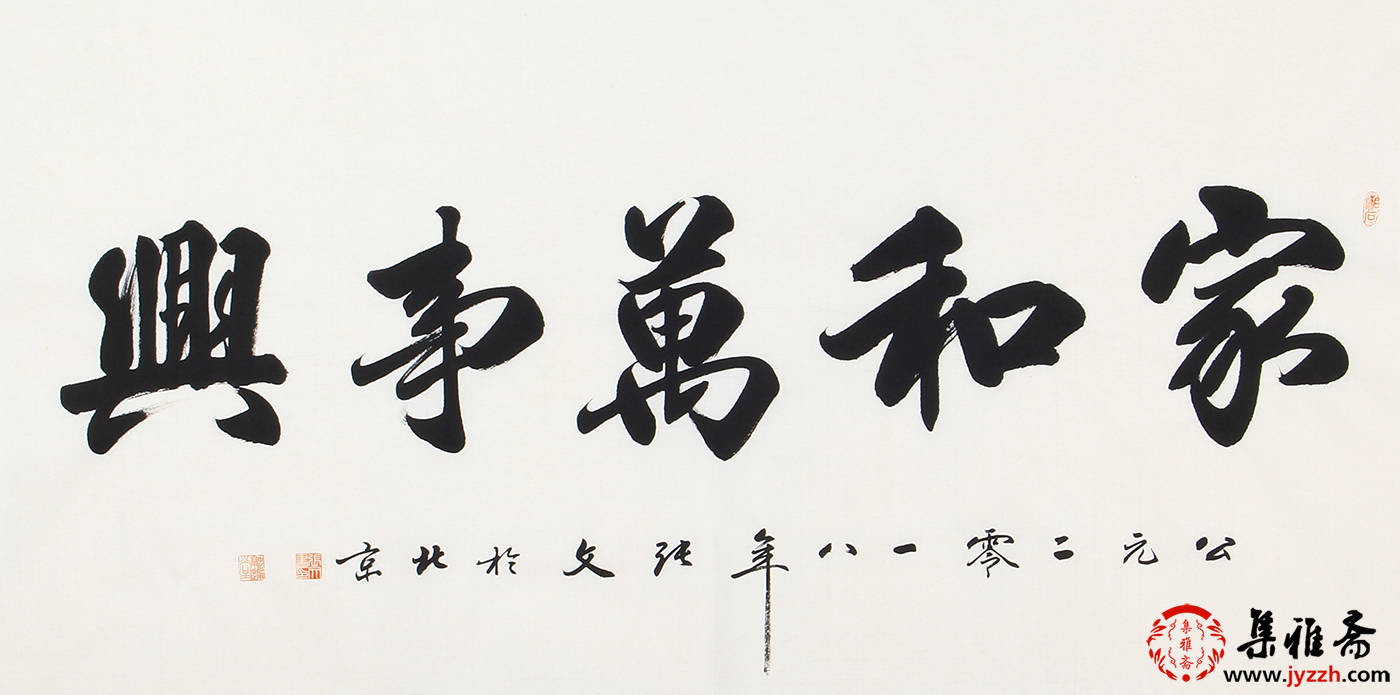 家和萬事興
公元二零一八年張文於北京
集雅斋
集雅斋
www.jyzzh.com